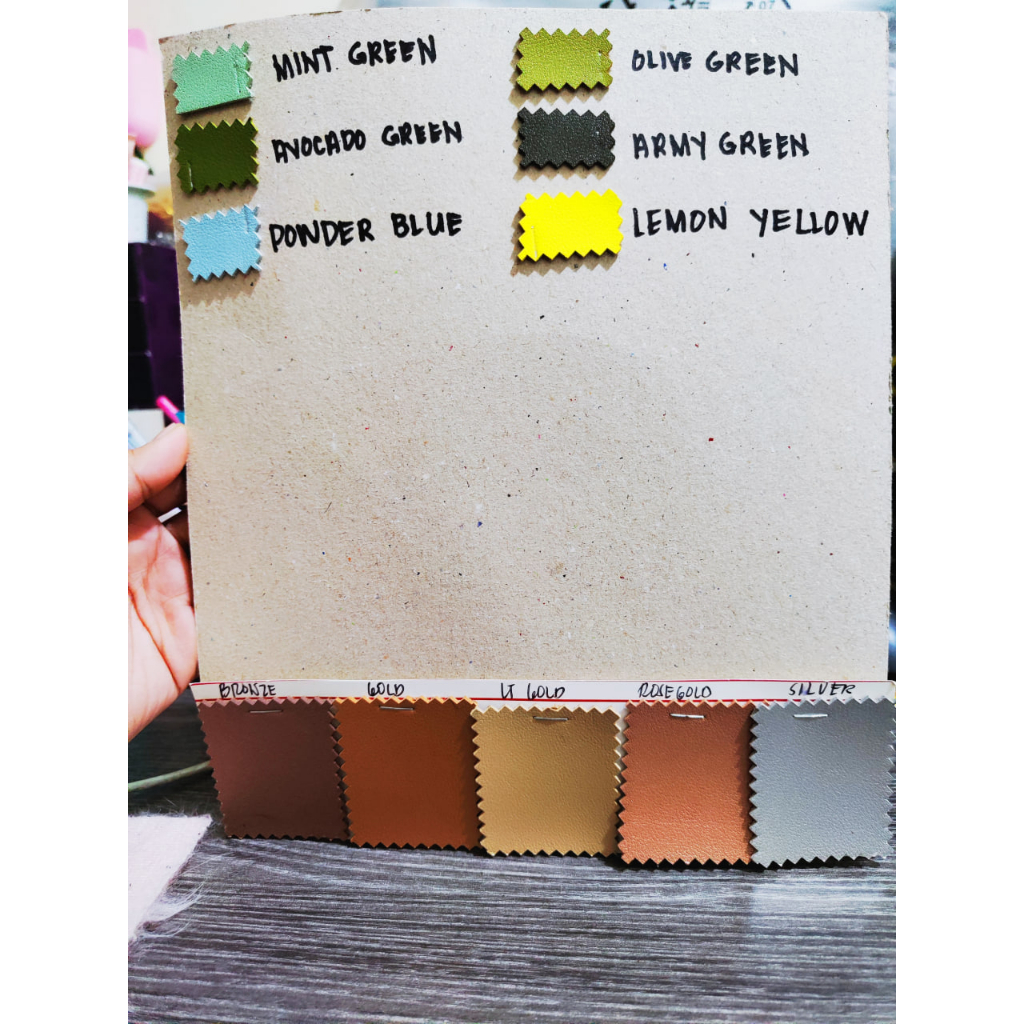 MINT GREEN
OLIVE GREEN
AVOCADO GREEN
ARMY GREEN
POWDER BLUE
LEMON YELLOW
BRONZE
GOLD
LT GOLD
ROSEGOLD
SILVER